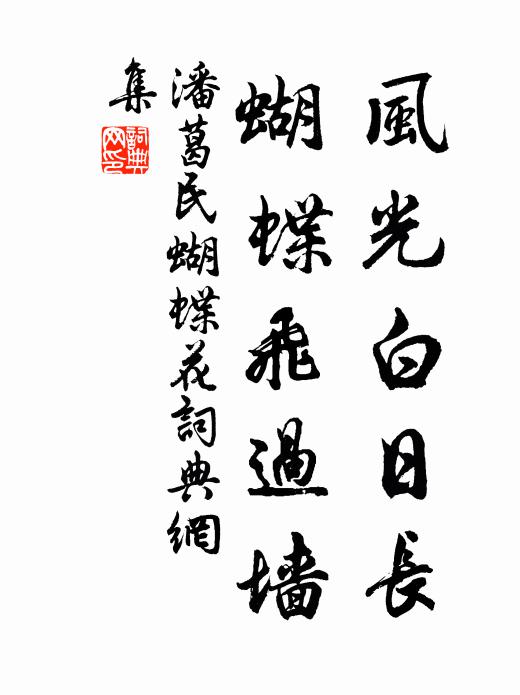 風光白日長
蝴蝶飛過墻
潘葛民蝴蝶花詞典網
集
詞典网印